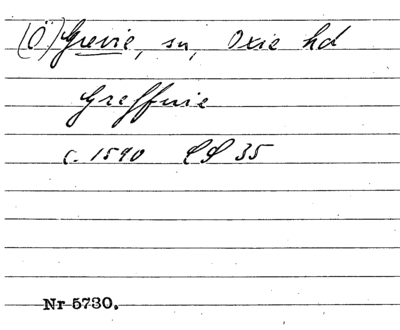 (Ö) Grevie, sn, Oxie hd
Greffuie
c. 1590 LL 35
Nr 5730.